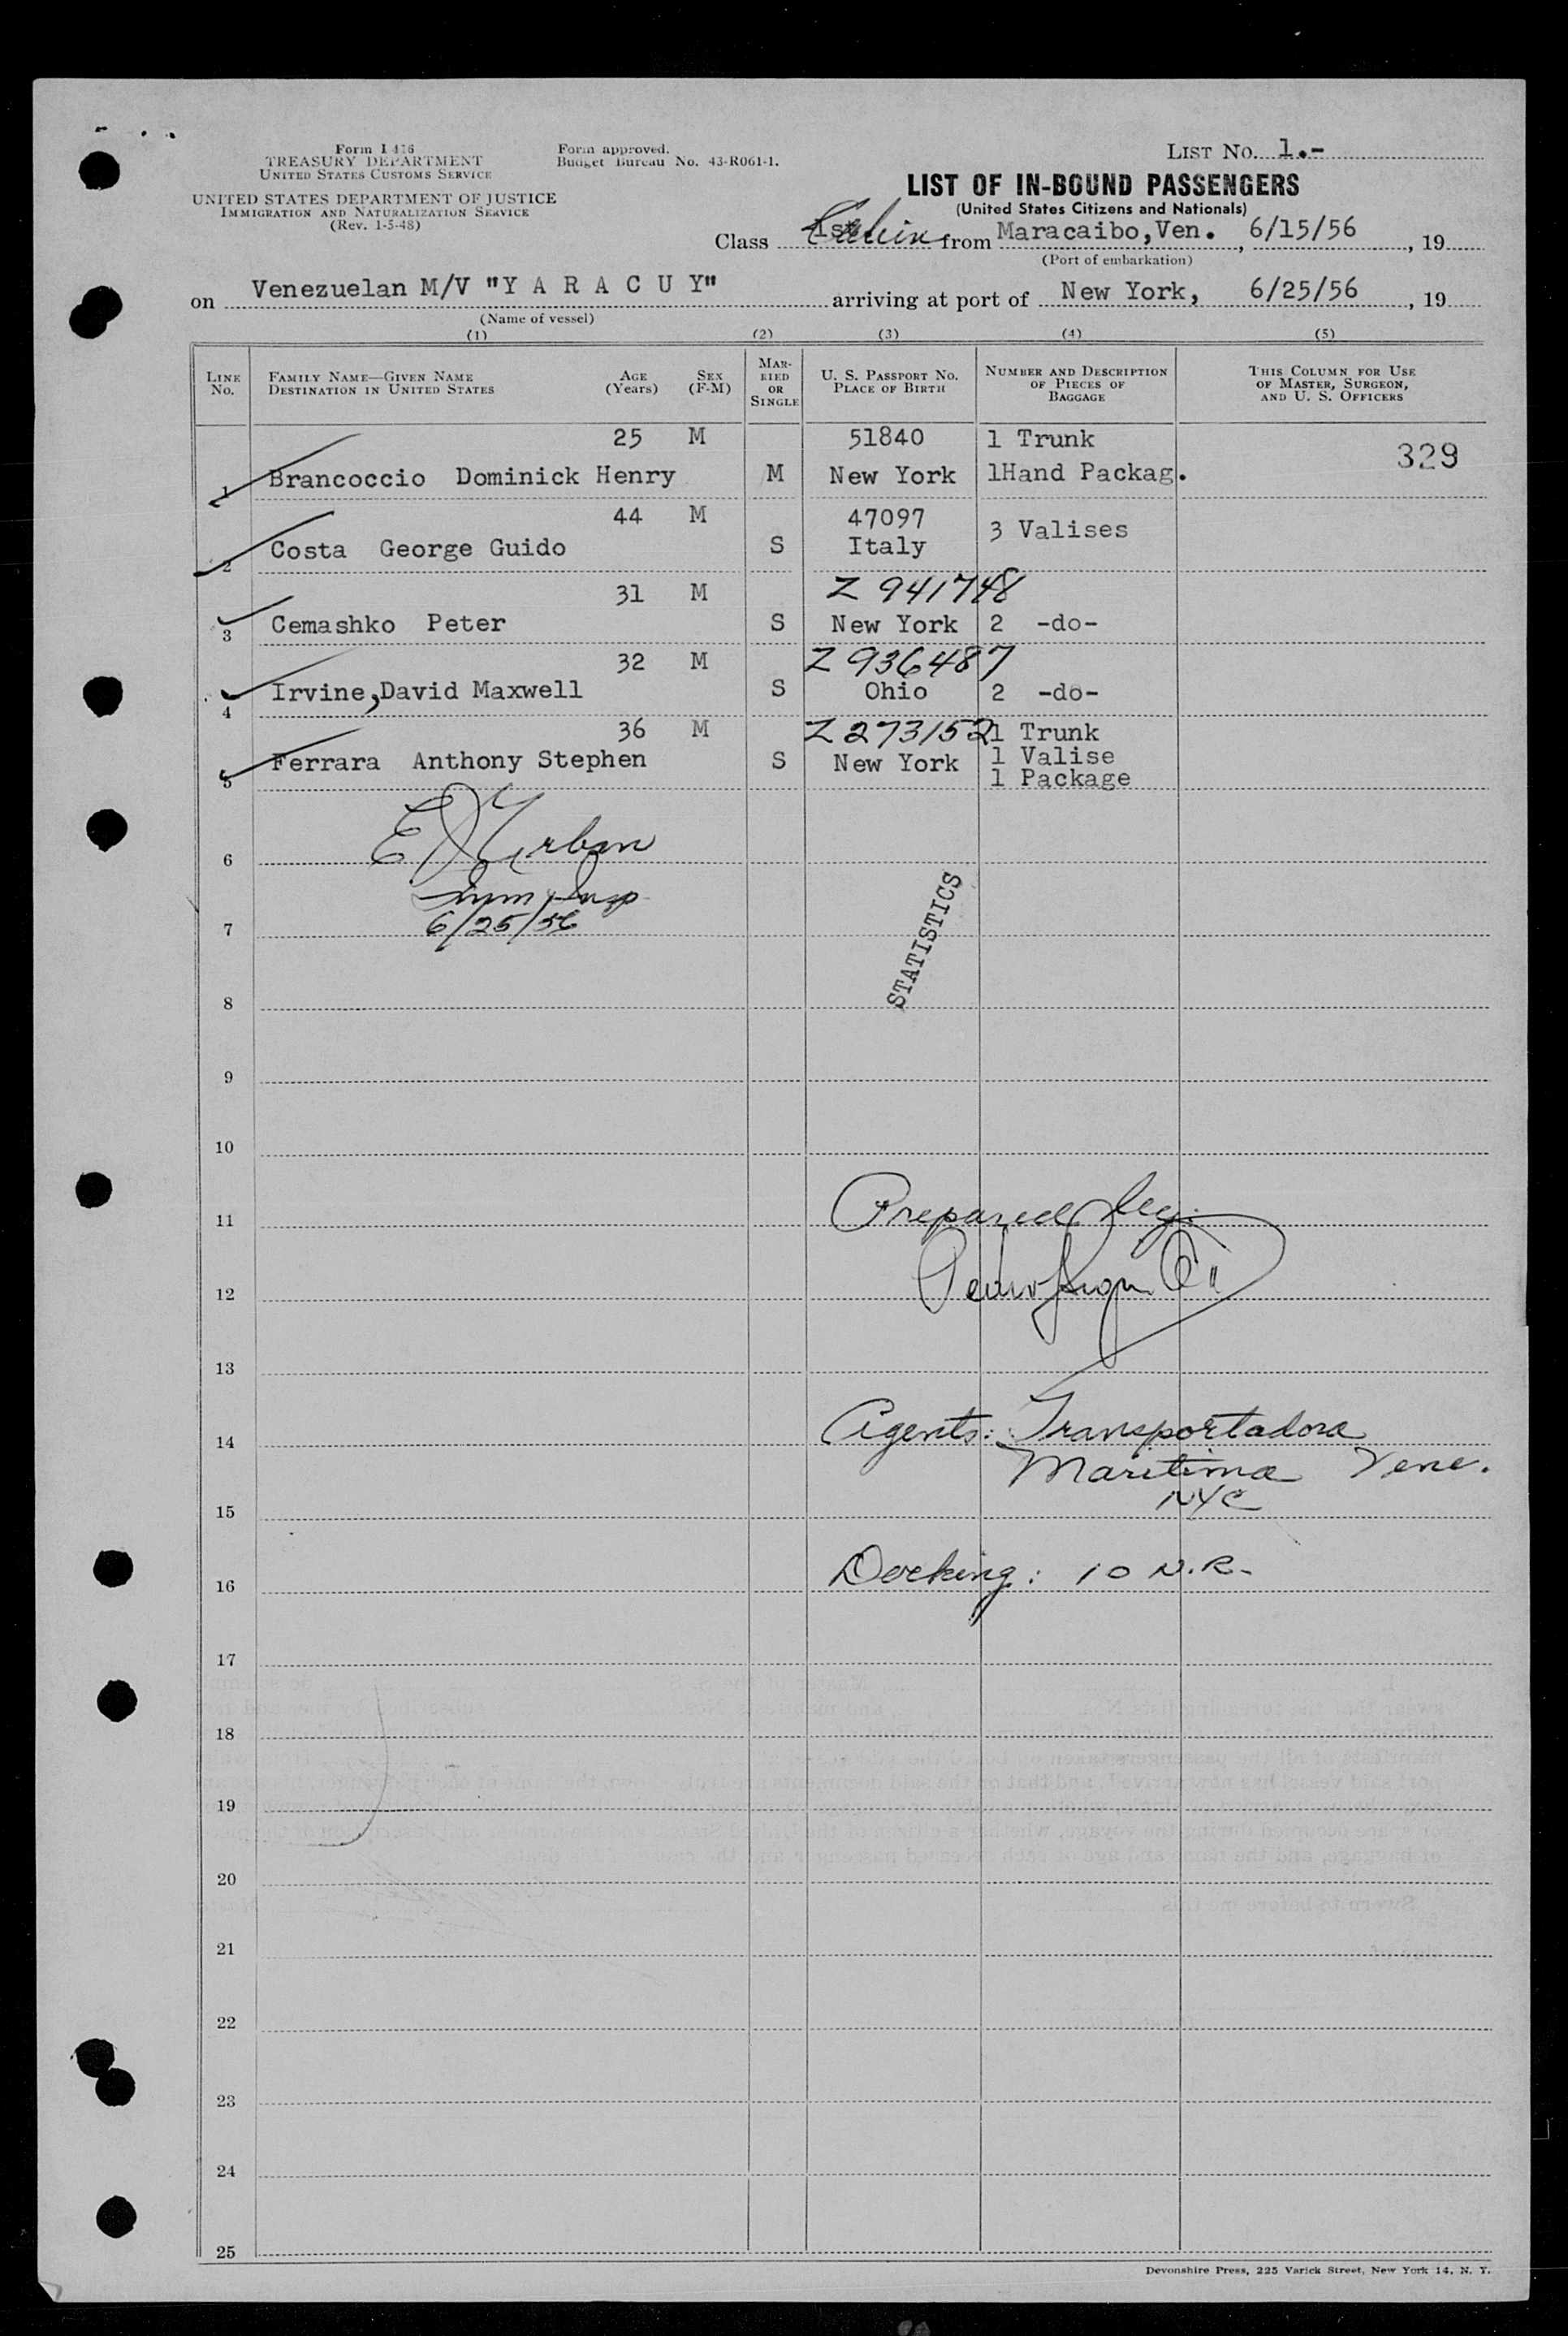 Form I 416
TREASURY DEPARTMENT
UNITED STATES CUSTOMS SERVICE
UNITED STATES DEPARTMENT OF JUSTICE
IMMIGRATION AND NATURALIZATION SERVICE
(Rev. 1-5-48)
Form approved.
Budget Bureau No. 43-R061-1.
LIST NO. 1.-
LIST OF IN-BOUND PASSENGERS
(United States Citizens and Nationals)
Class 1st Cabin from Maracaibo,Ven. , 6/15/56 , 19
(Port of embarkation)
on Venezuelan M/V "Y A R A C U Y" arriving at port of New York, 6/25/56 , 19
(Name of vessel)
(1) (2) (3) (4) (5)
LINE NO. FAMILY NAME—GIVEN NAME DESTINATION IN UNITED STATES AGE (Years) SEX (F-M) MARRIED OR SINGLE U. S. PASSPORT NO. PLACE OF BIRTH NUMBER AND DESCRIPTION OF PIECES OF BAGGAGE THIS COLUMN FOR USE OF MASTER, SURGEON, AND U. S. OFFICERS
25 M 51840 1 Trunk 329
1 Brancoccio Dominick Henry M New York 1Hand Packag.
44 M 47097 3 Valises
2 Costa George Guido S Italy
31 M Z 941748
3 Cemashko Peter S New York 2 -do-
32 M Z 936487
4 Irvine,David Maxwell S Ohio 2 -do-
36 M Z 273152 1 Trunk
5 Ferrara Anthony Stephen S New York 1 Valise
1 Package
E J Urban
6
Imm Insp
7 6/25/56
STATISTICS
8
9
10
11 Prepared by:
12 Pedro
13
Agents: Transportadora
14
Maritima Vene.
NYC
15
Docking: 10 N.R.
16
17
18
19
20
21
22
23
24
25
Devonshire Press, 225 Varick Street, New York 14, N. Y.